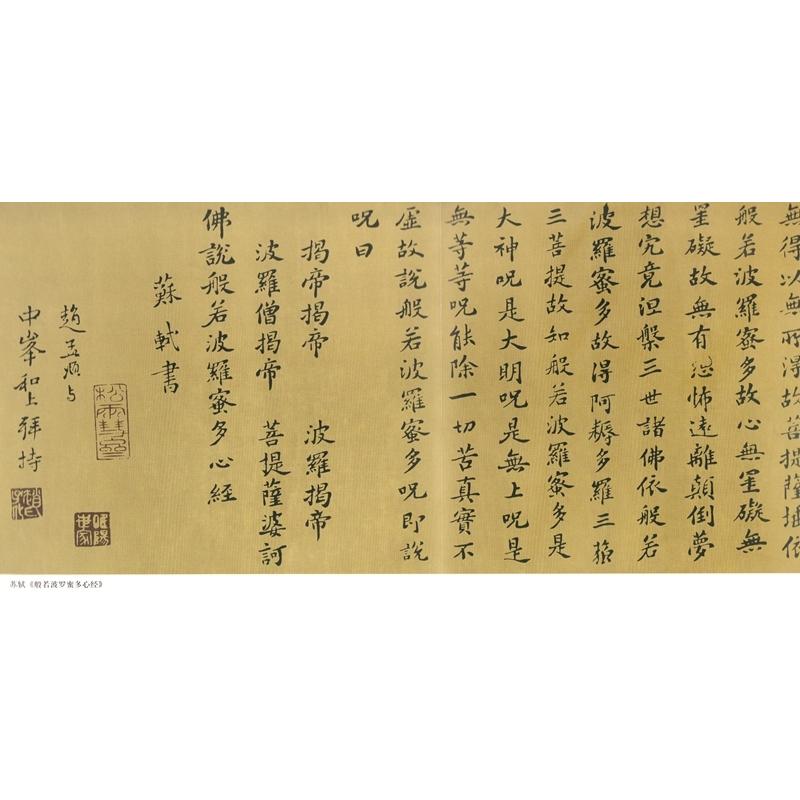 無得以無所得故菩提薩埵依
般若波羅蜜多故心無罣礙無
罣礙故無有恐怖遠離顛倒夢
想究竟涅槃三世諸佛依般若
波羅蜜多故得阿耨多羅三藐
三菩提故知般若波羅蜜多是
大神呪是大明呪是無上呪是
無等等呪能除一切苦真實不
虛故說般若波羅蜜多呪即說
呪曰
揭帝揭帝 波羅揭帝
波羅僧揭帝 菩提薩婆訶
佛說般若波羅蜜多心經
蘇軾書
松雪齋
趙孟頫与
中峯和上拜持
苏轼《般若波罗蜜多心经》